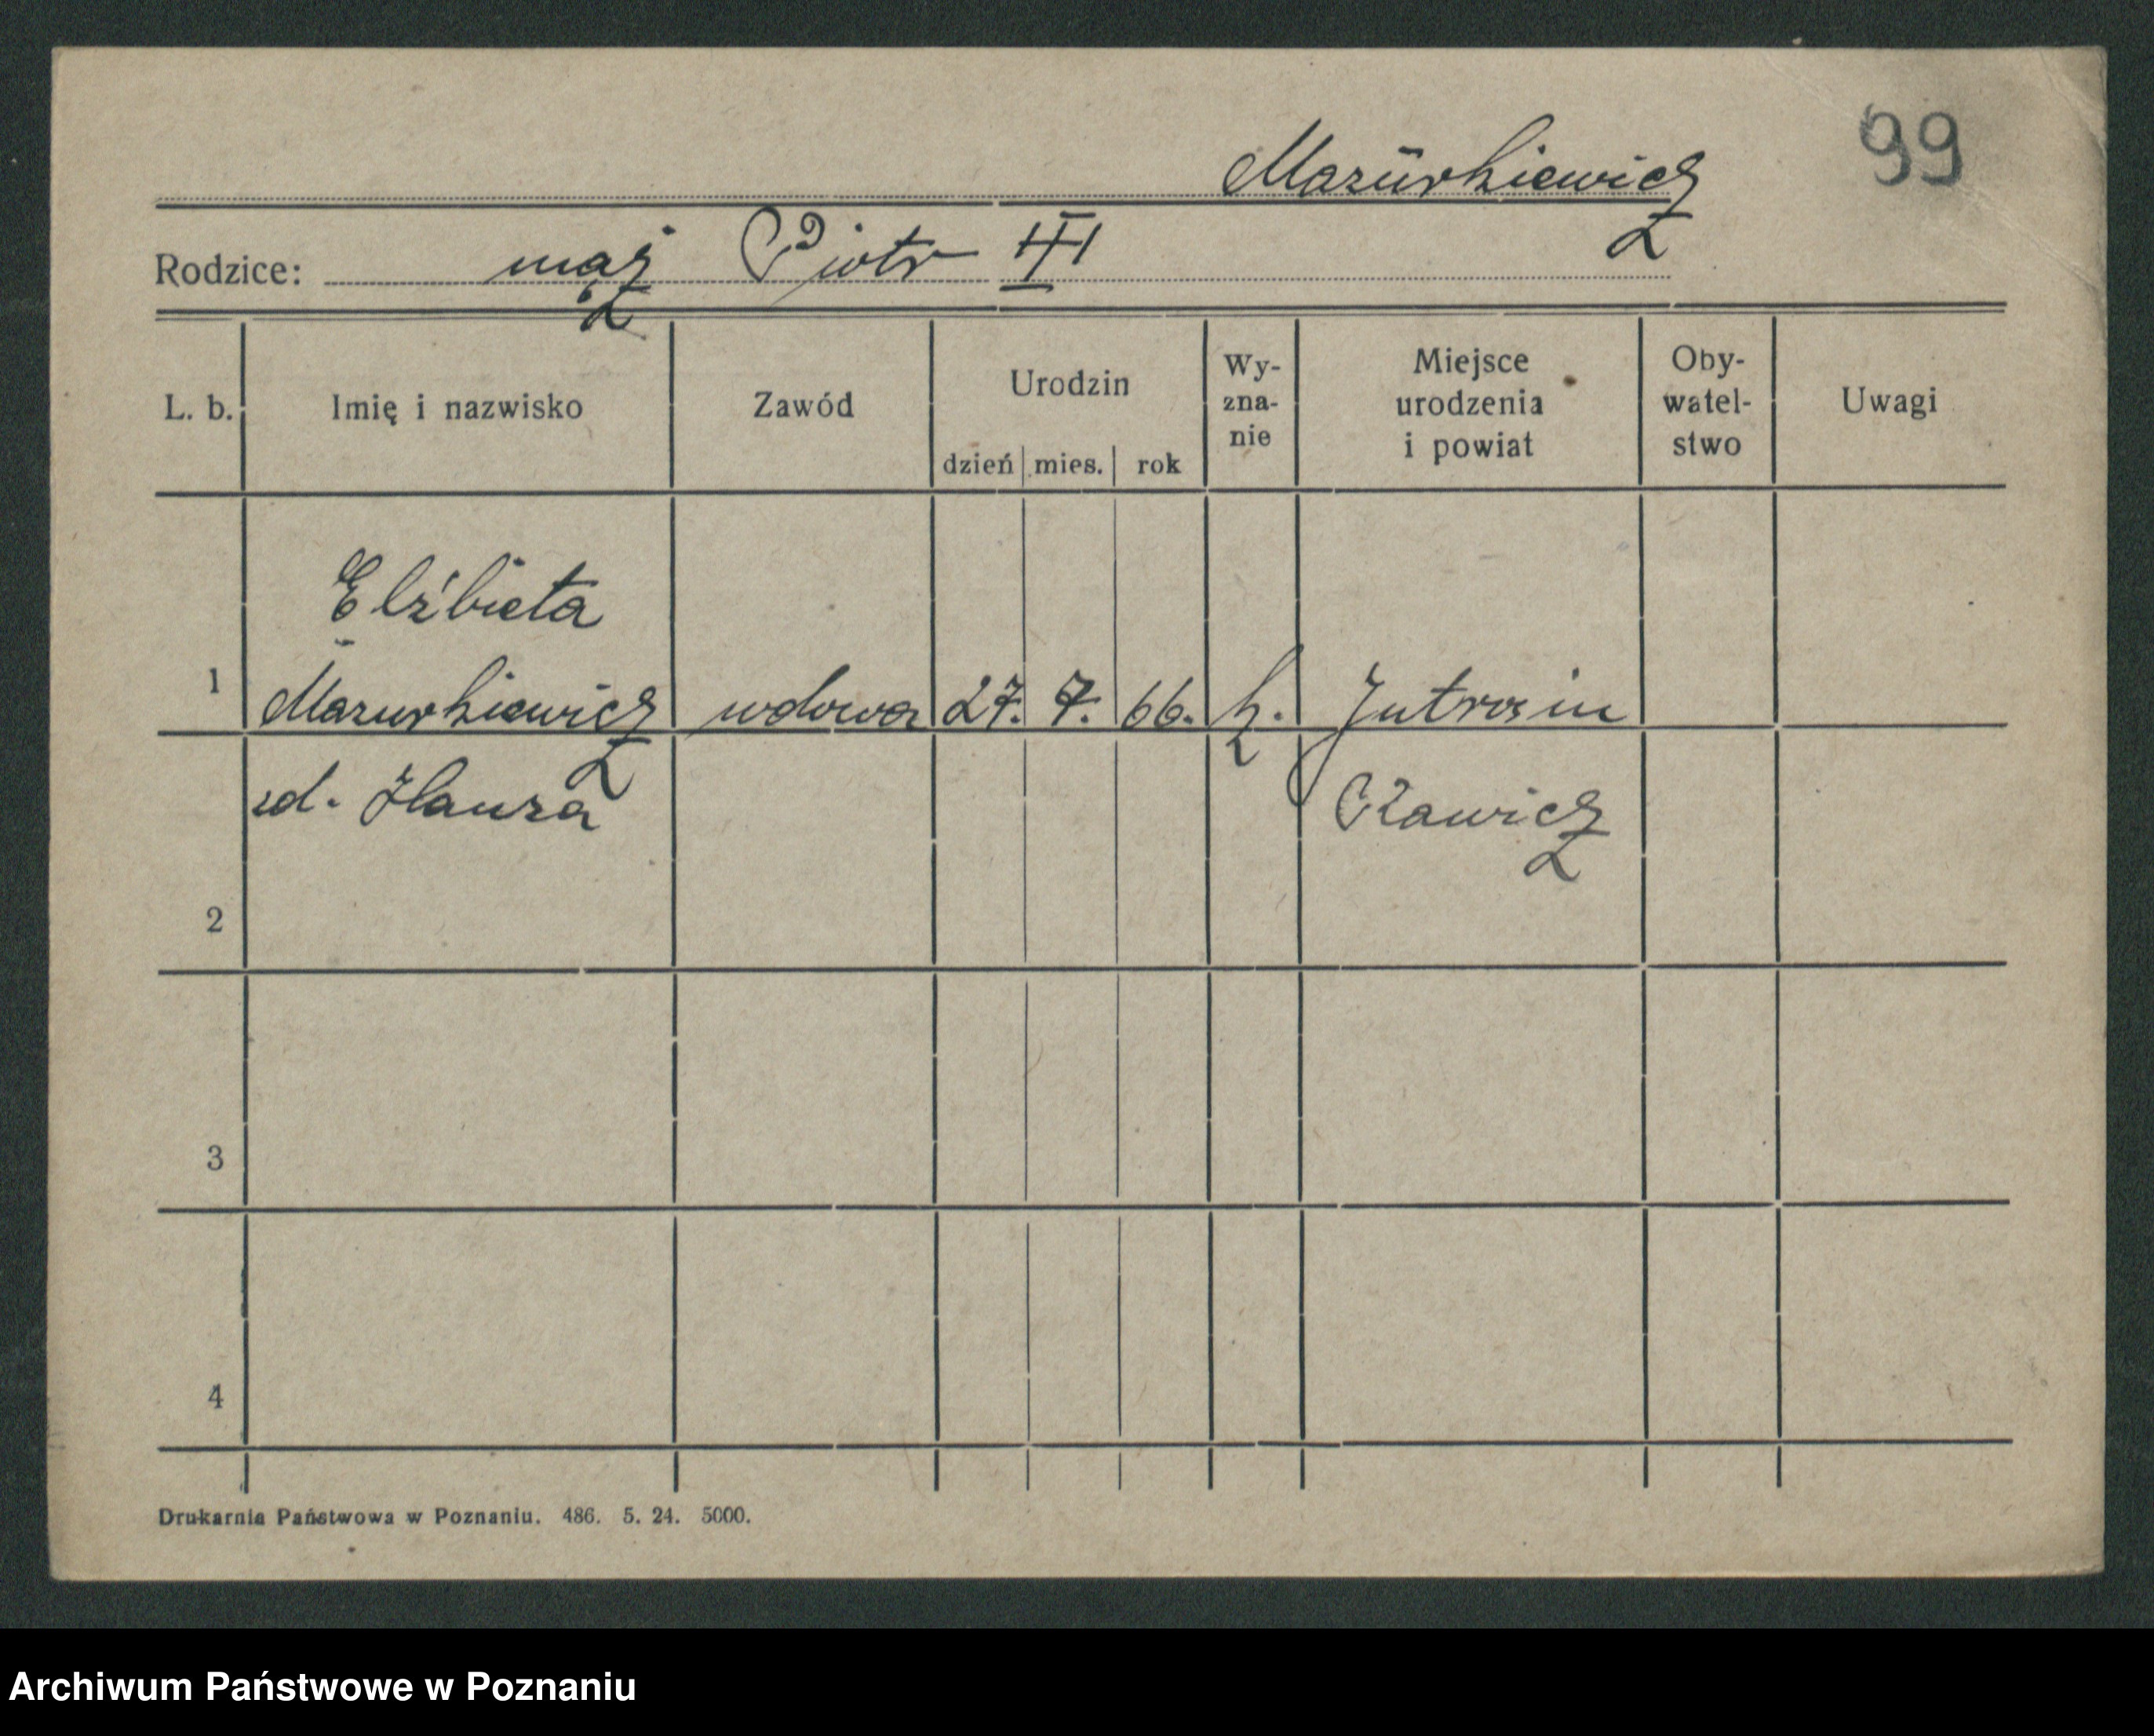 99
Mazurkiewicz
Rodzice: mąż Piotr III
L. b. Imię i nazwisko Zawód Urodzin dzień mies. rok Wy-zna-nie Miejsce urodzenia i powiat Oby-watel-stwo Uwagi
Elżbieta
1 Mazurkiewicz wdowa 27. 7. 66. k. Jutrosin
zd. Hauza Rawicz
2
3
4
Drukarnia Państwowa w Poznaniu. 486. 5. 24. 5000.
Archiwum Państwowe w Poznaniu